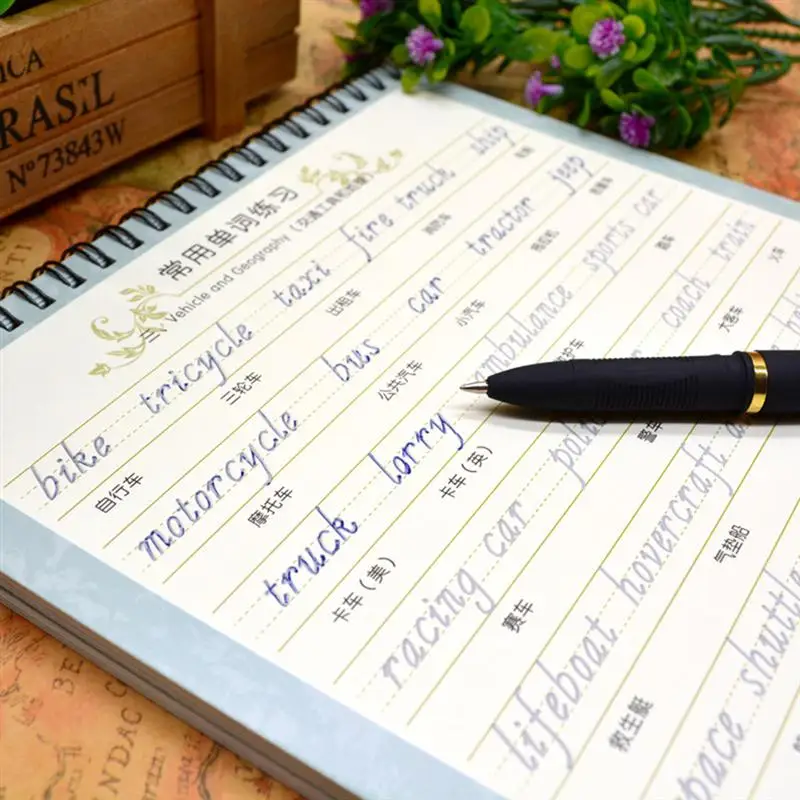 ICA
RASIL
Nº73843W
常用单词练习
三、Vehicle and Geography（交通工具和地理）
bike tricycle taxi fire truck ship
自行车 三轮车 出租车 消防车
motorcycle bus car tractor jeep
摩托车 公共汽车 小汽车 拖拉机 吉普车
truck lorry ambulance sports car
卡车（美） 卡车（英） 护车 跑车
racing car poli coach train
赛车 警车 大客车 火车
lifeboat hovercraft
救生艇 气垫船
pace shuttle